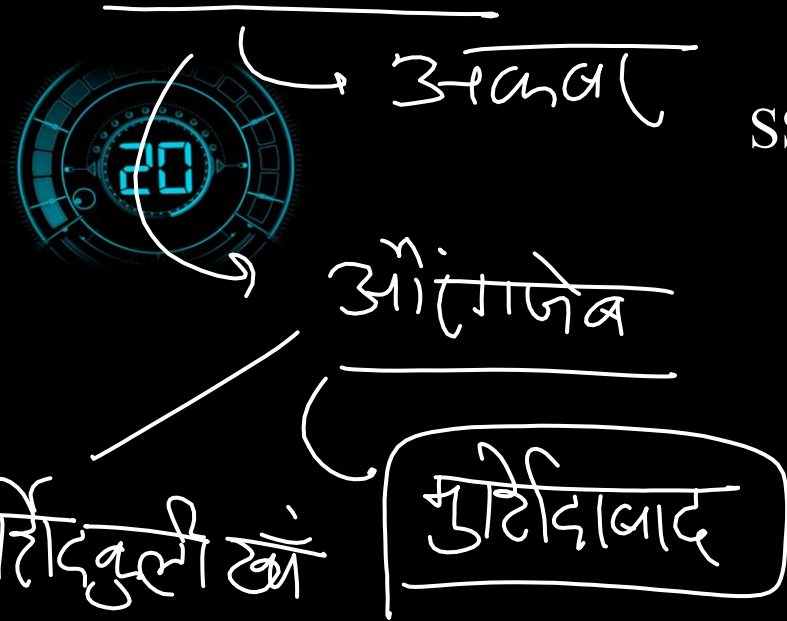 अकबर
SS
20
औरंगजेब
र्शिदकुली खाँ
मुर्शिदाबाद